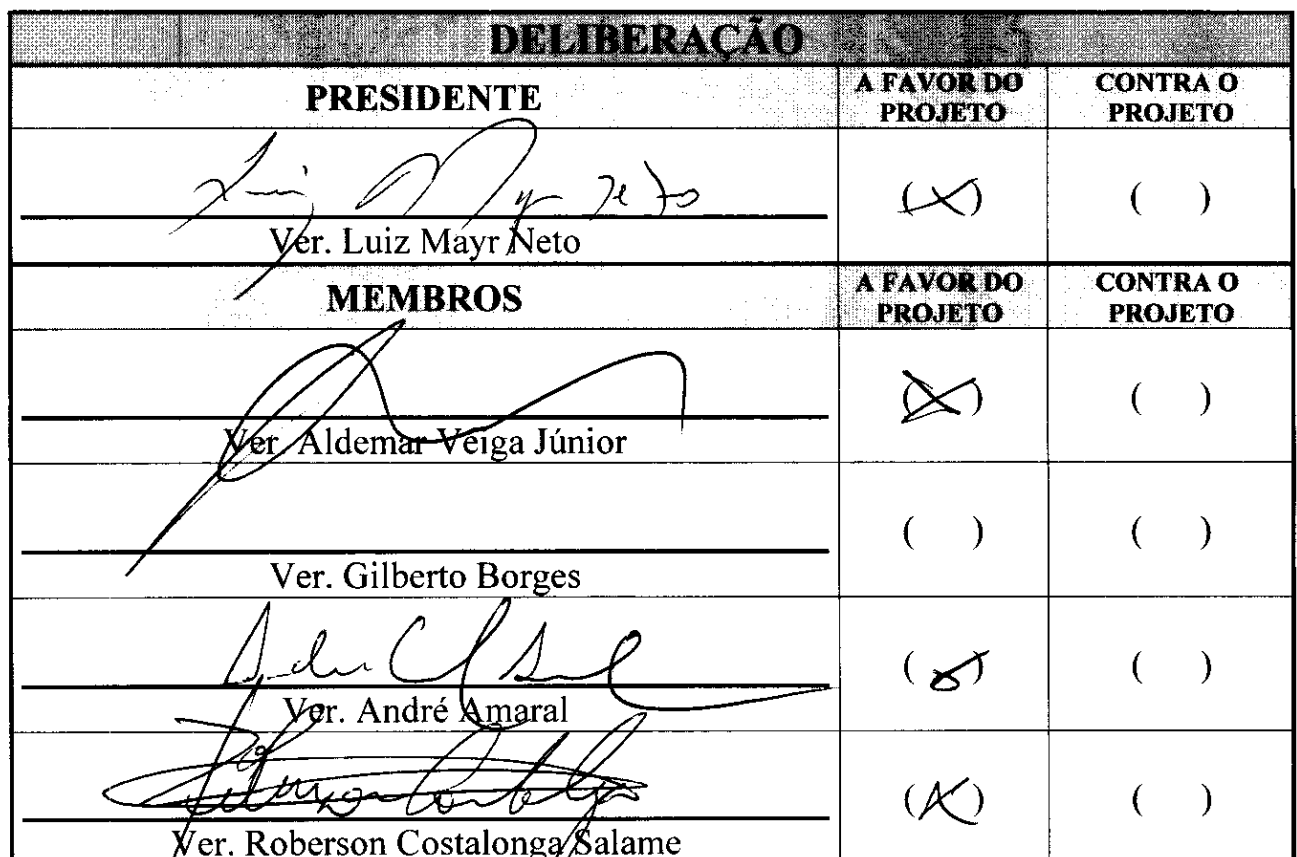 DELIBERAÇÃO
PRESIDENTE A FAVOR DO PROJETO CONTRA O PROJETO
Luiz Mayr Neto (X) ( )
Ver. Luiz Mayr Neto
MEMBROS A FAVOR DO PROJETO CONTRA O PROJETO
(X) ( )
Ver. Aldemar Veiga Júnior
( ) ( )
Ver. Gilberto Borges
( ) ( )
Ver. André Amaral
(X) ( )
Ver. Roberson Costalonga Salame